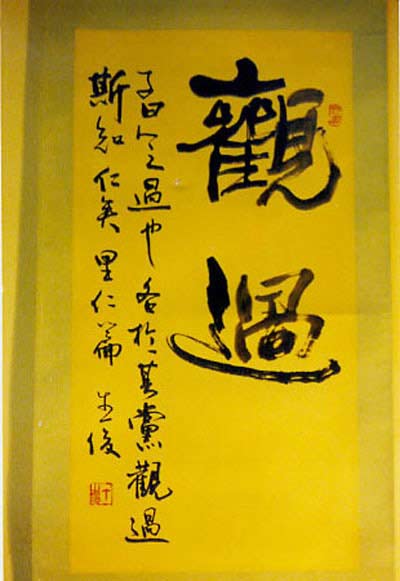 觀過
子曰人之過也各於其黨觀過
斯知仁矣 里仁篇 生俊